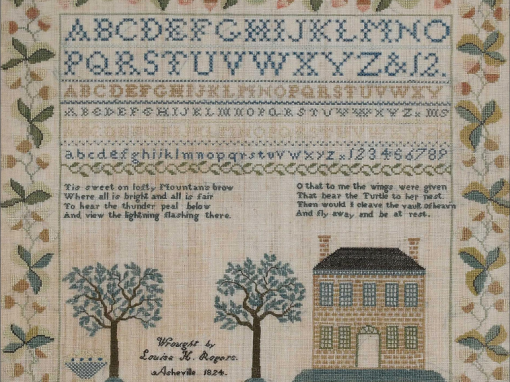 ABCDEFGHIJKLMNO
PQRSTUVWXYZ&12.
ABCDEFGHIJKLMNOPQRSTUVWXY
abcdefghijklmnopqrstuvwxyz 123456789
Tis sweet on lofty Mountans brow
Where all is bright and all is fair
To hear the thunder peal below
And view the lightning flashing there.
O that to me the wings were given
That bear the Turtle to her nest
Then would I cleave the vault of heavn
And fly away and be at rest.
Wrought by
Louisa H. Rogers.
Asheville 1824.